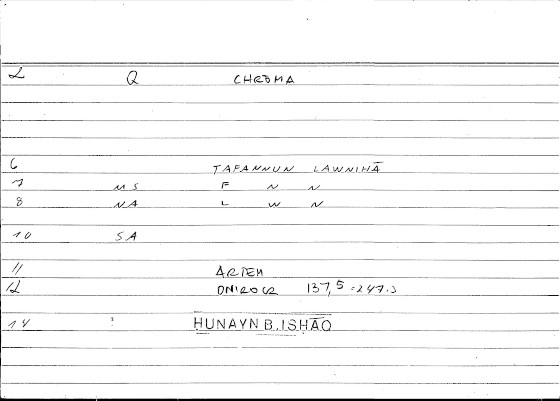 2 Q CHROMA
6 TAFANNUN LAWNIHĀ
7 MS F N N
8 NA L W N
10 SA
11 ARTEM
12 ONIROCR 137,5 = 247.3
14 : HUNAYN B. ISHĀQ